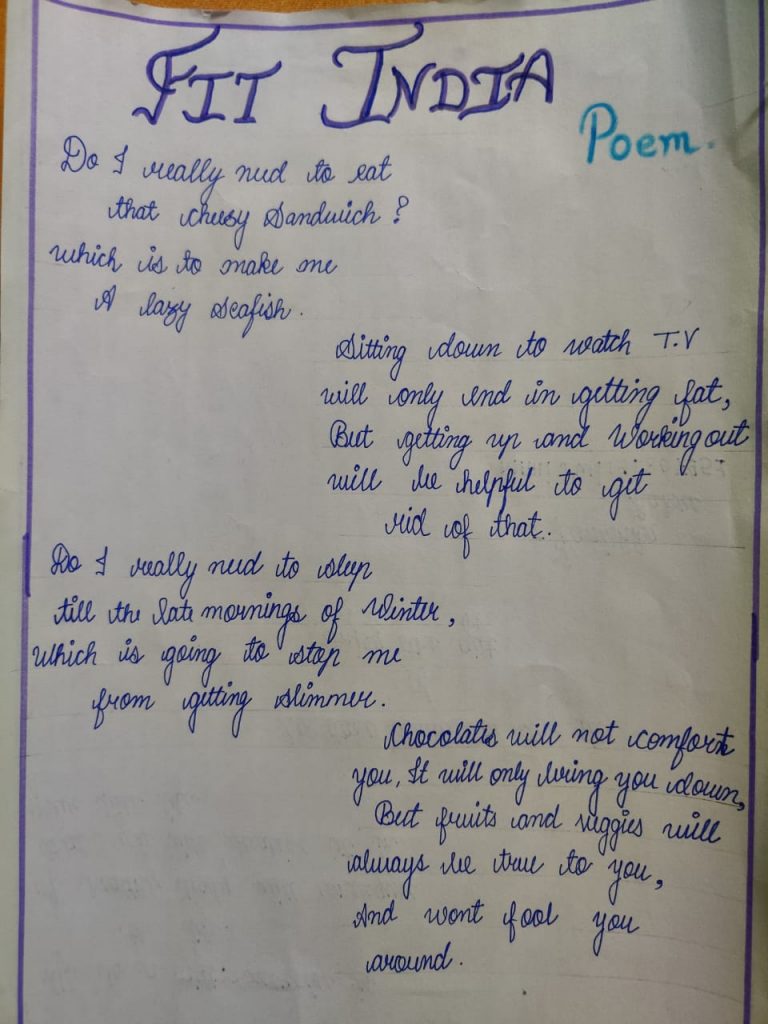 FIT INDIA
Poem.
Do I really need to eat
that cheesy Sandwich?
Which is to make me
A lazy seafish.
Sitting down to watch T.V
will only end in getting fat,
But getting up and Working out
will be helpful to get
rid of that.
Do I really need to sleep
till the late mornings of Winter,
Which is going to stop me
from getting slimmer.
Chocolates will not comfort
you, It will only bring you down,
But fruits and veggies will
always be true to you,
And wont fool you
around.